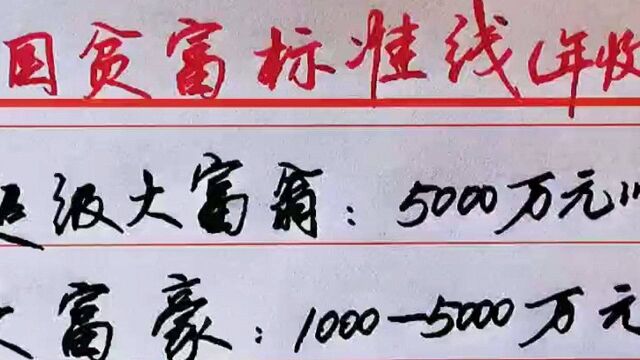 国贫富标准线(年收
超级大富翁：5000万元以
大富豪：1000—5000万元